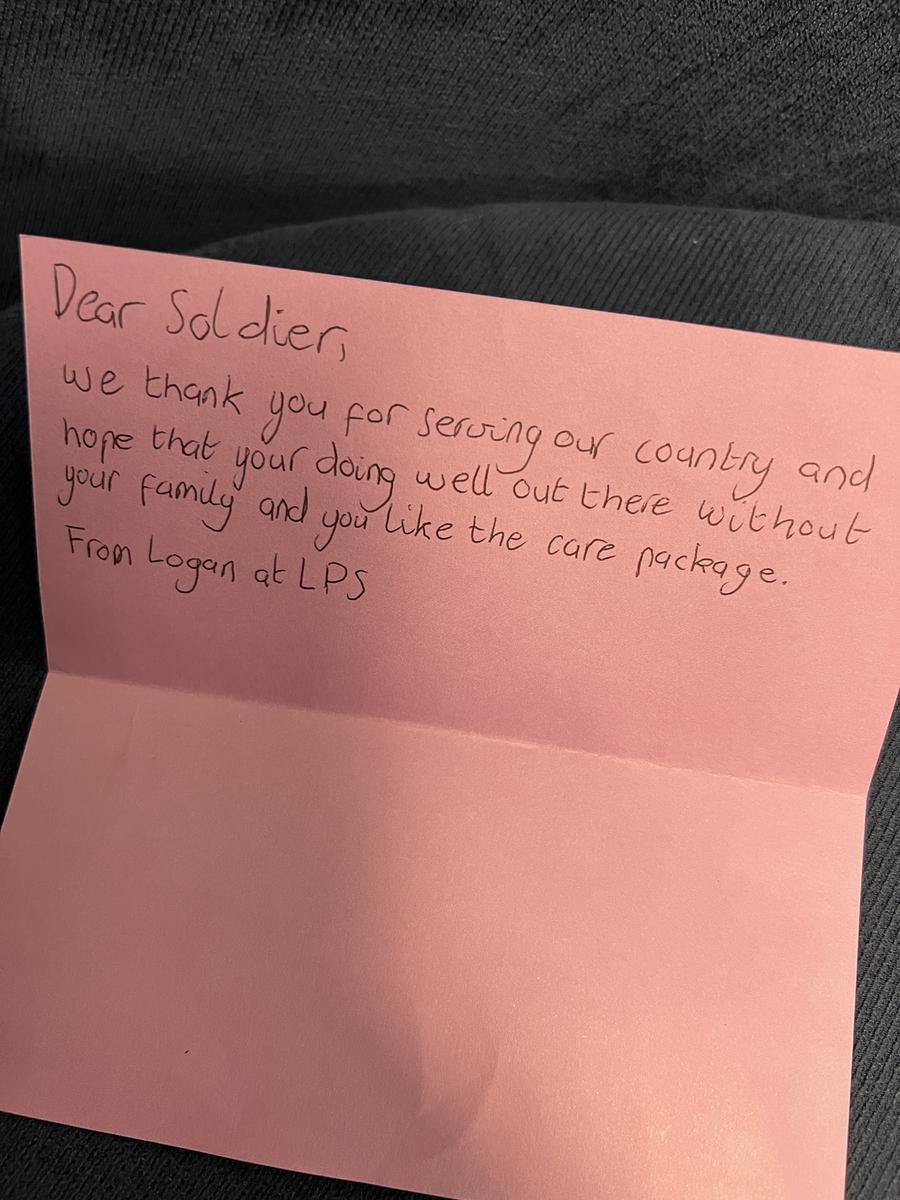 Dear Soldier,
we thank you for serving our country and
hope that your doing well out there without
your family and you like the care package.
From Logan at LPS